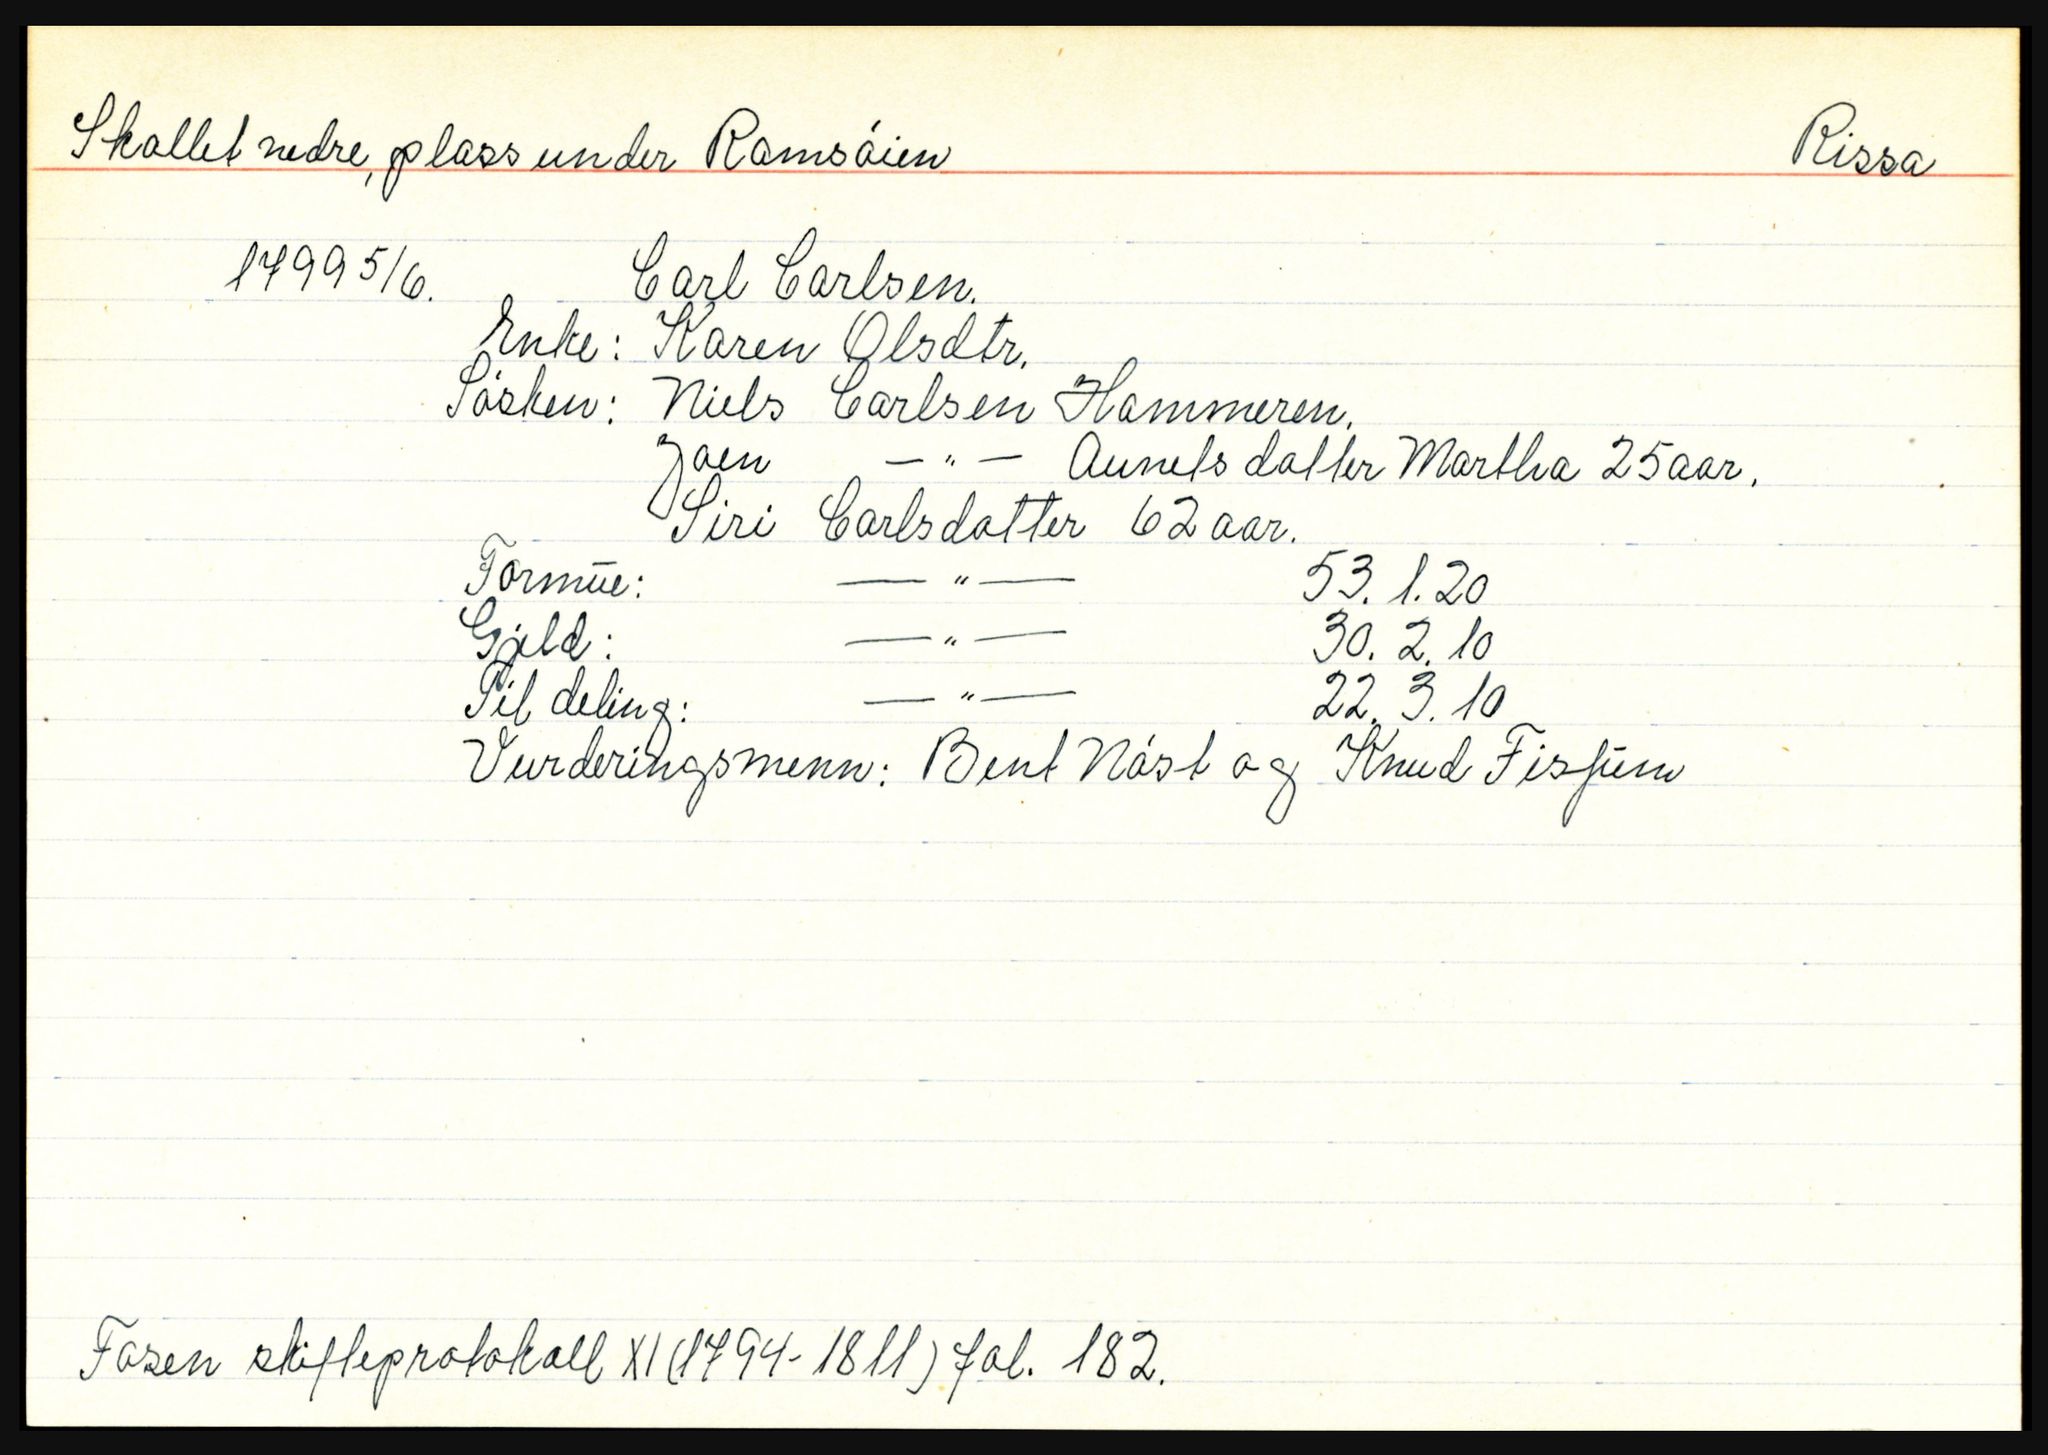 Skallet nedre, plass under Ramsøien Rissa
1799 5/6. Carl Carlsen.
Enke: Karen Olsdtr.
Søsken: Niels Carlsen Hammeren.
Joen —„— Aunets datter Martha 25 aar.
Siri Carlsdatter 62 aar.
Formūe: —„— 53. 1. 20
Gjeld: —„— 30. 2. 10
Til deling: —„— 22. 3. 10
Vurderingsmenn: Bent Nøst og Knud Fissūm
Fosen skifteprotokoll XI (1794-1811) fol. 182.